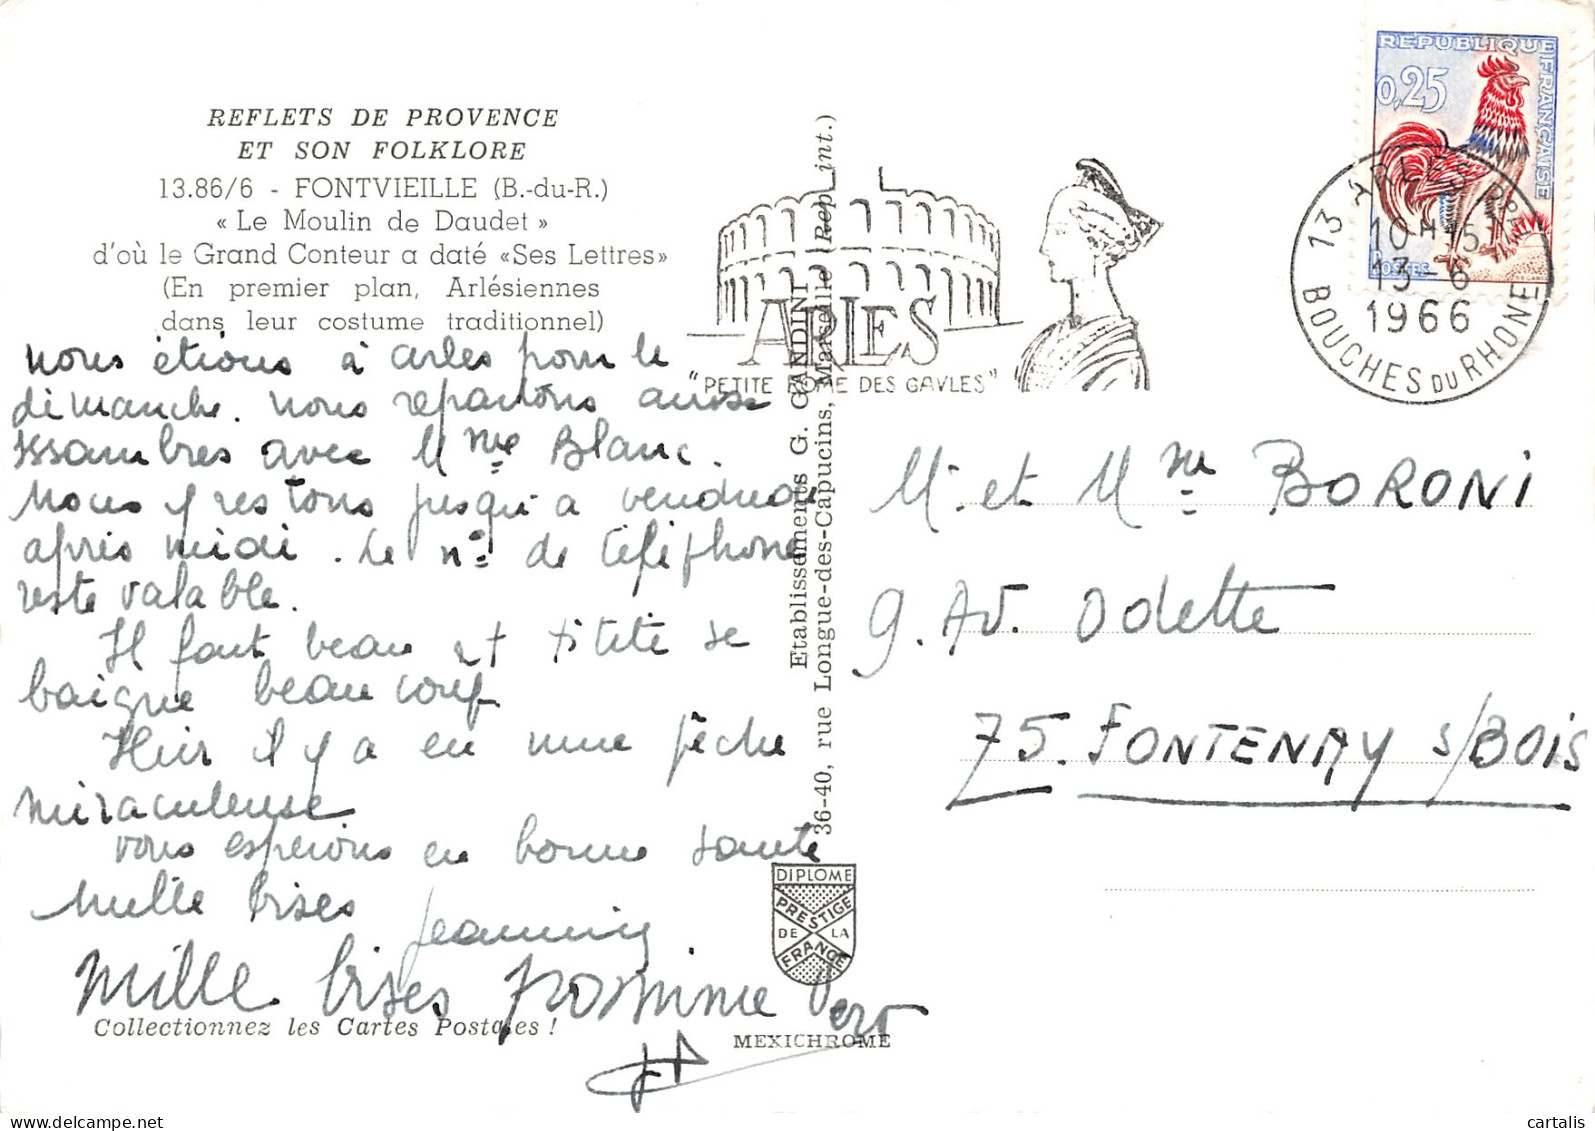 REFLETS DE PROVENCE
ET SON FOLKLORE
13.86/6 - FONTVIEILLE (B.-du-R.)
« Le Moulin de Daudet »
d'où le Grand Conteur a daté «Ses Lettres»
(En premier plan, Arlésiennes
dans leur costume traditionnel)
nous étions à arles pour le
dimanche. nous repartons aux
Issambres avec Mme Blanc.
Nous y restons jusqu'a vendredi
après midi. Le n° de téléphone
reste valable.
Il fait beau et titite se
baigne beaucoup
Hier il y a eu une pêche
miraculeuse
vous esperons en bonne santé
Mille bises
Jeannine
Mille bises
Collectionnez les Cartes Postales !
Etablissements G. GANDINI
36-40, rue Longue-des-Capucins, Marseille (Rep. int.)
DIPLOME
PRESTIGE
DE LA
FRANCE
MEXICHROME
ARLES
"PETITE ROME DES GAVLES"
REPUBLIQUE FRANÇAISE
0,25
POSTES
13 ARLES RPAL
10H15
13-6
1966
BOUCHES DU RHONE
M. et Mme BORONI
9. Av. Odette
75. FONTENAY s/BOIS
cartalis